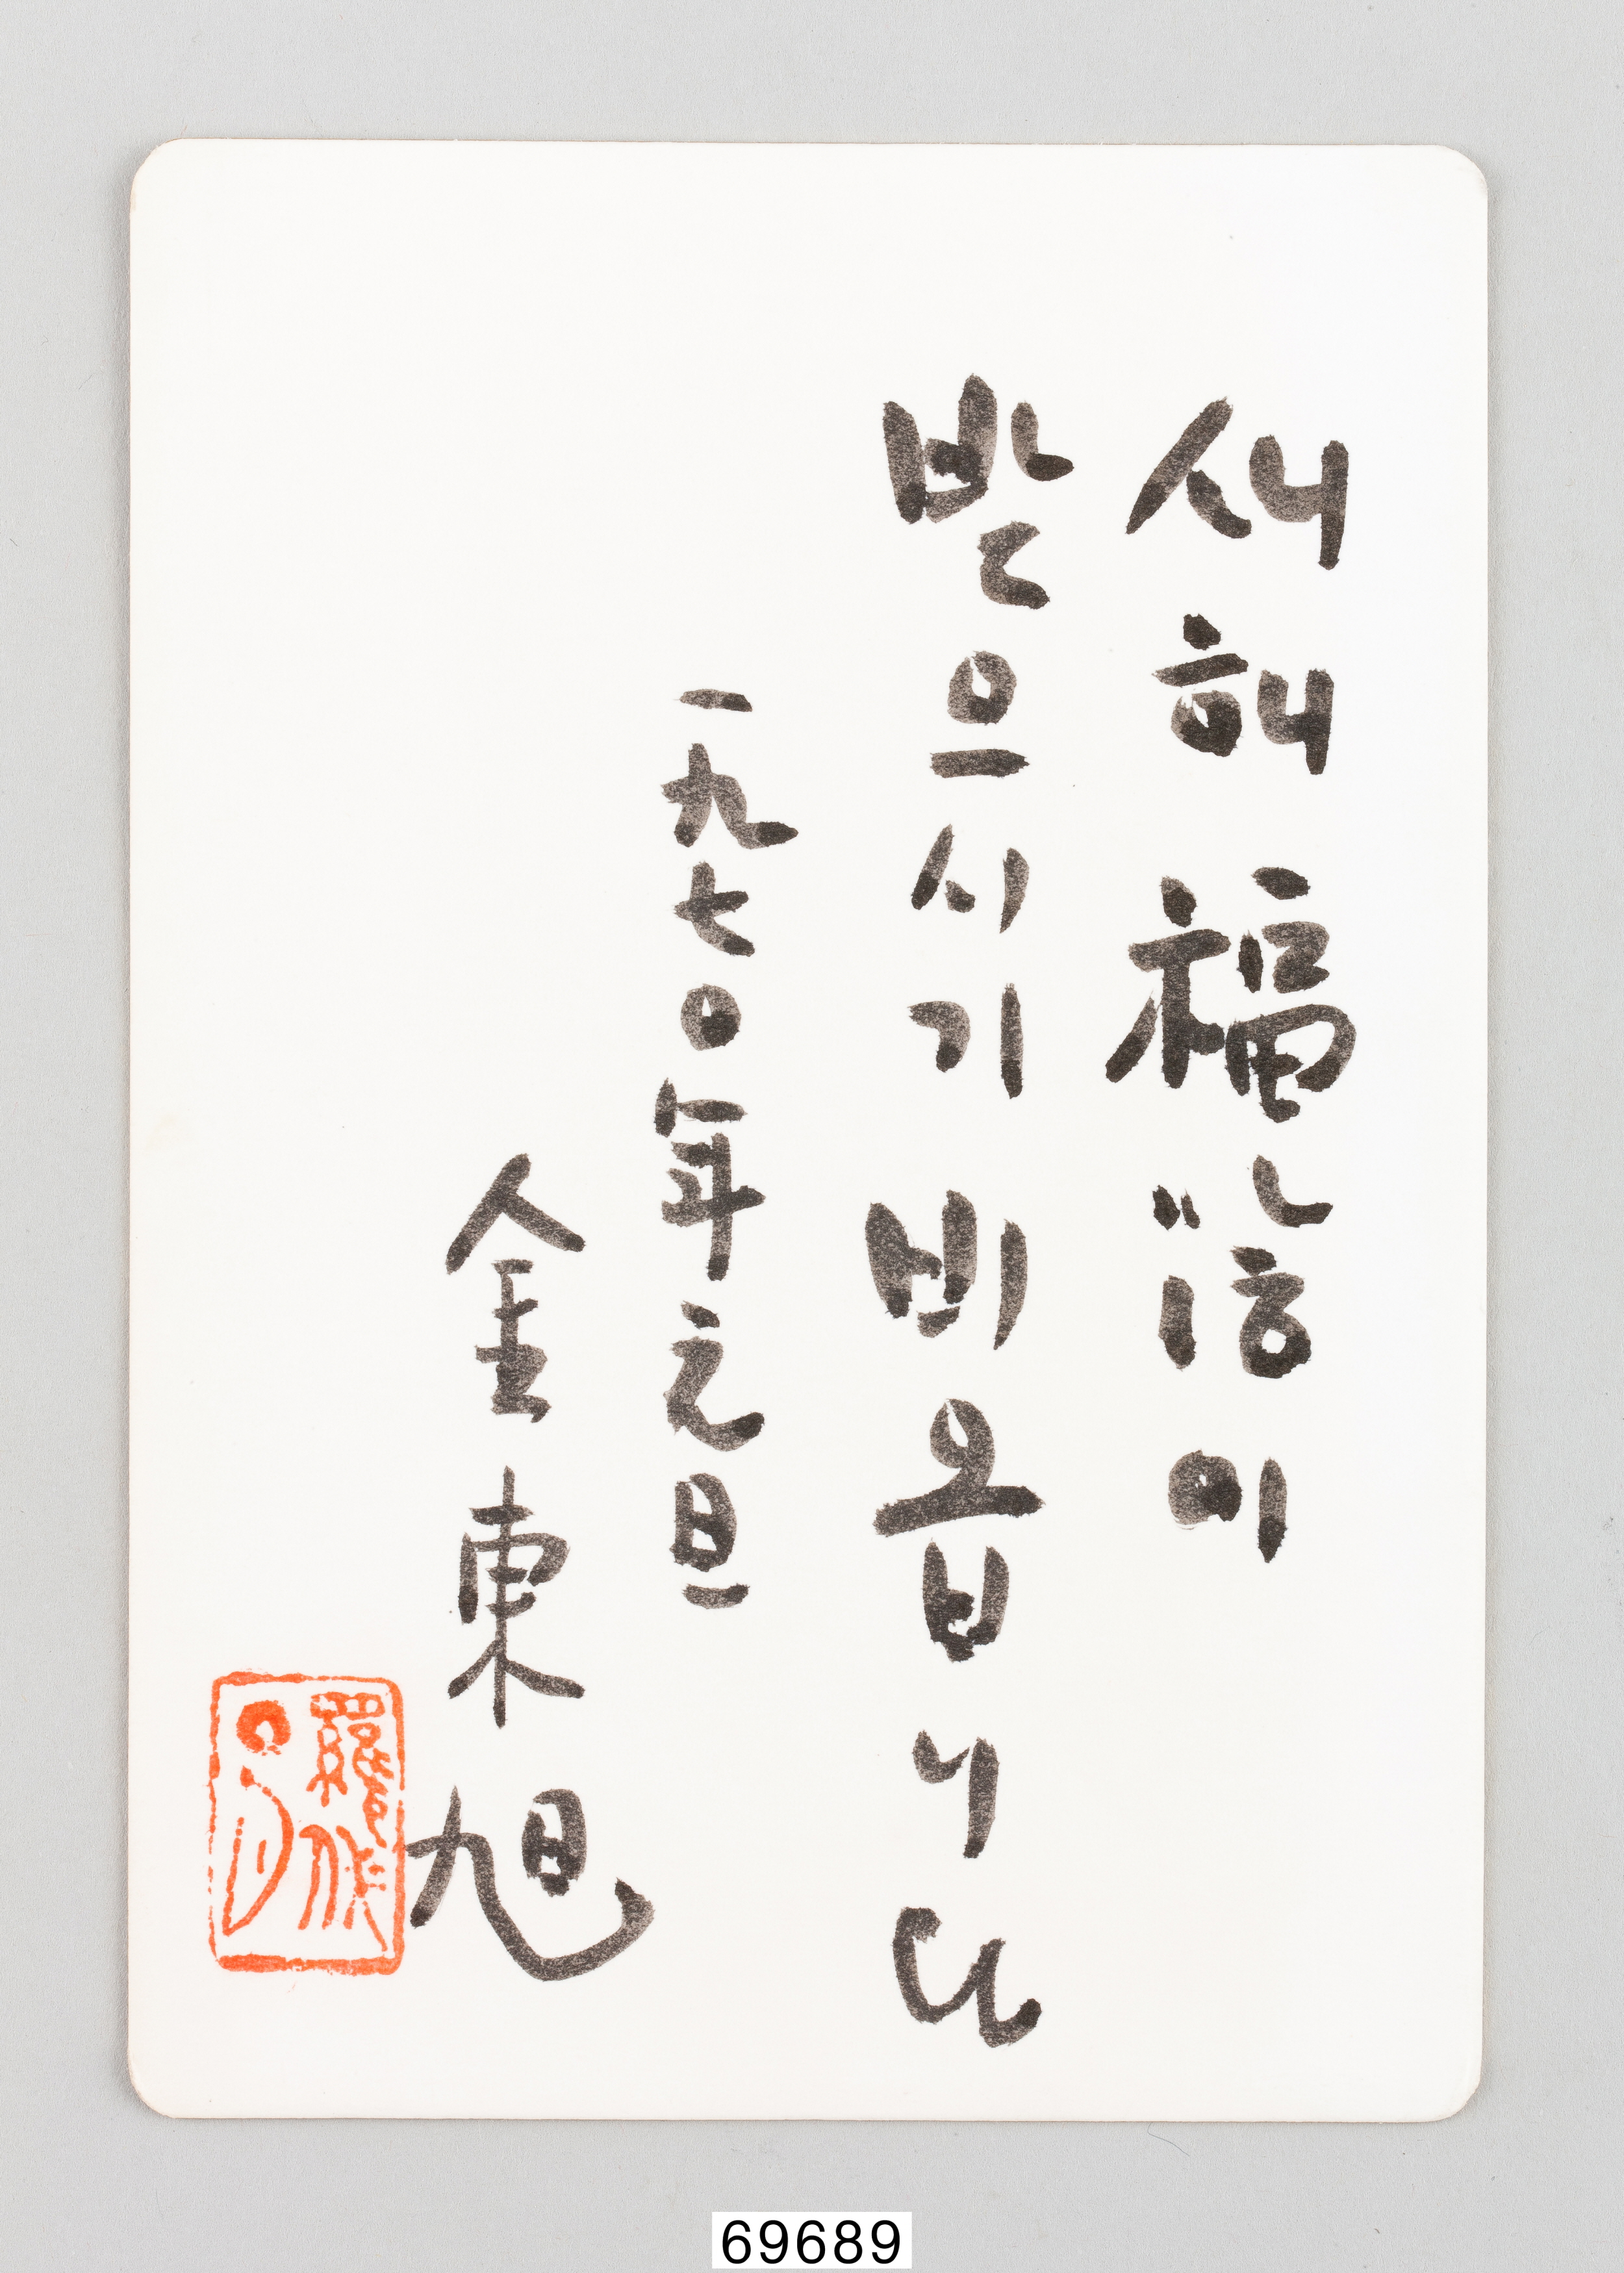 새해 福 많이
받으시기 비옵니다
一九七〇年元旦
金東旭
69689